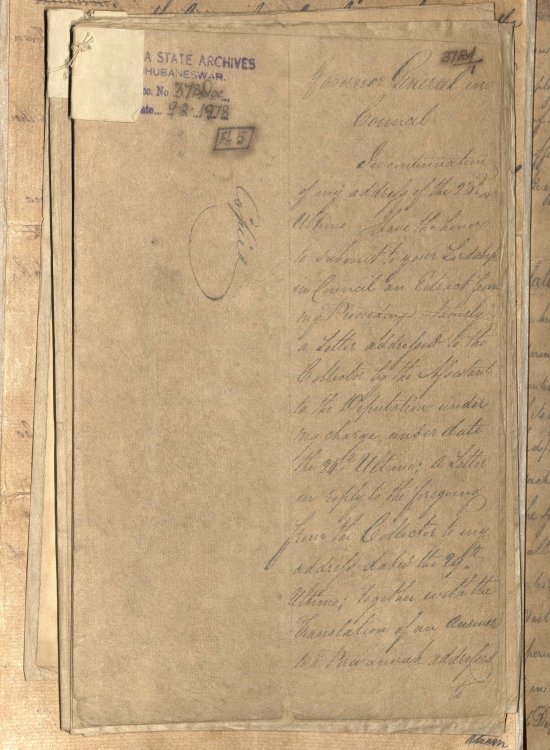 A STATE ARCHIVES
HUBANESWAR.
cc. No. 378
ate... 9.2.1973
FL 5
378
1
Copied
Governor General in
Council
In continuation
of my address of the 23d
Ultimo I have the honor
to submit to your Lordship
in Council an Extract from
my Proceedings namely
a Letter addressed to the
Collector by the Assistant
to the Deputation under
my charge, under date
the 24th Ultimo; a Letter
in reply to the foregoing
from the Collector to my
address dated the 29th
Ultimo; together with the
Translation of an answer
to a Purwannah addressed
to